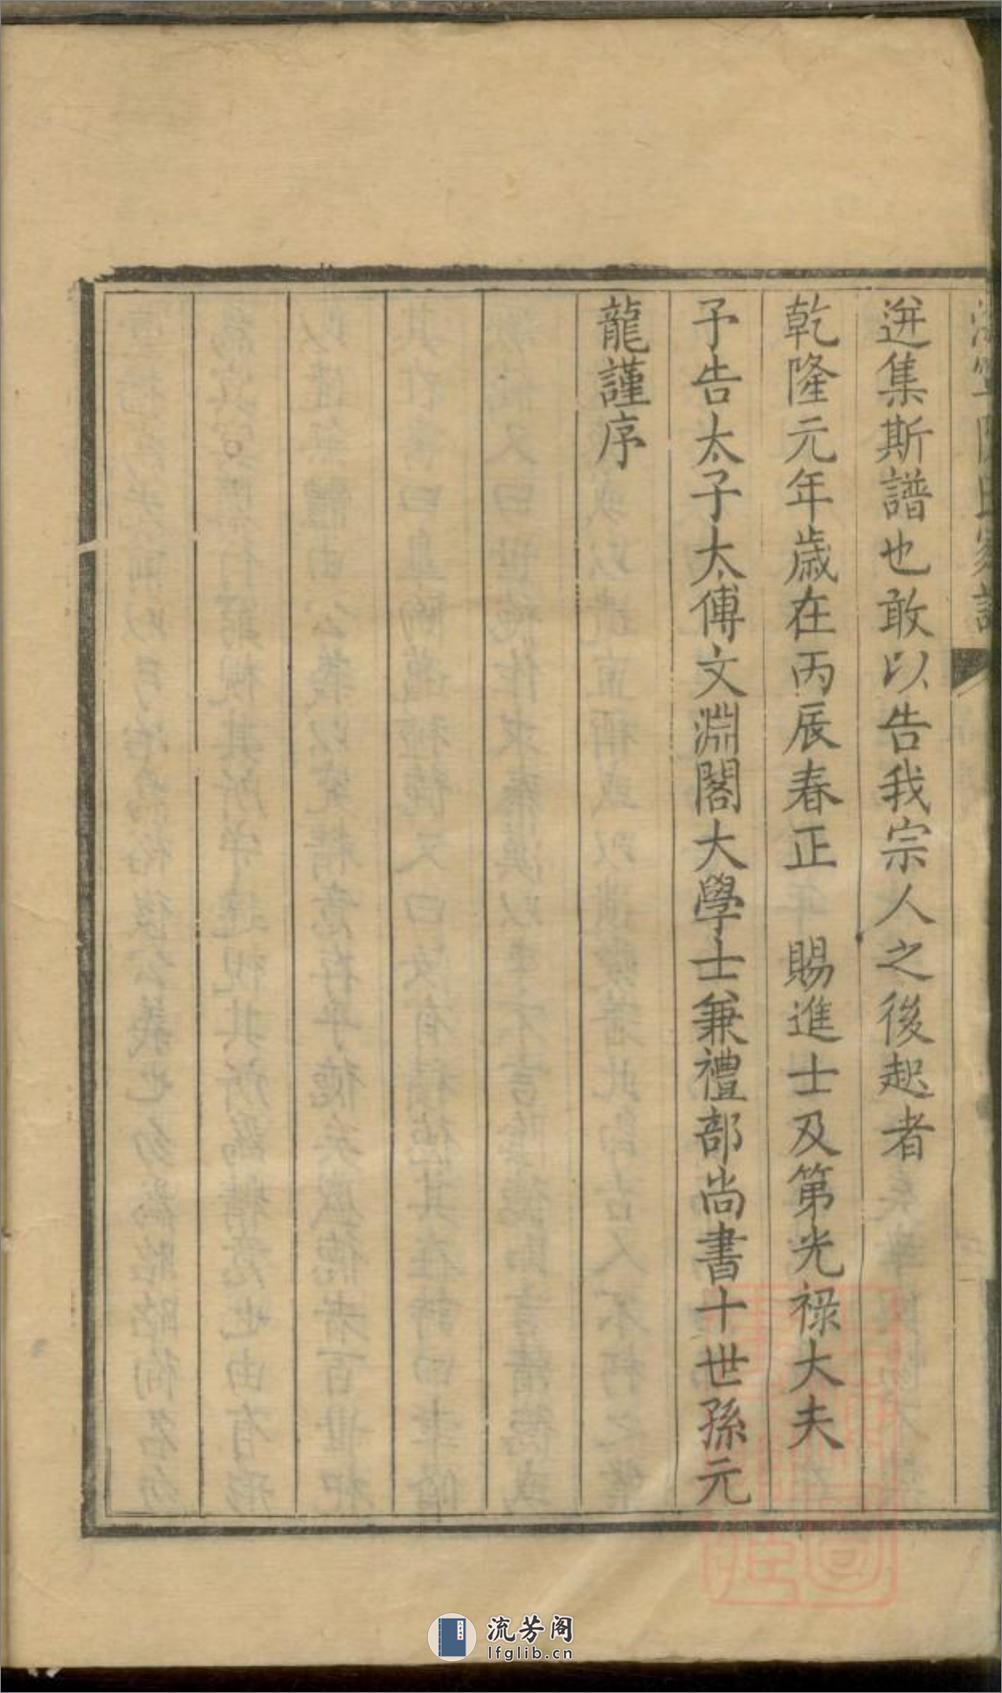 迸集斯譜也敢以告我宗人之後起者
乾隆元年歲在丙辰春正　賜進士及第光祿大夫
予告太子太傅文淵閣大學士兼禮部尚書十世孫元
龍謹序
流芳阁
lfglib.cn